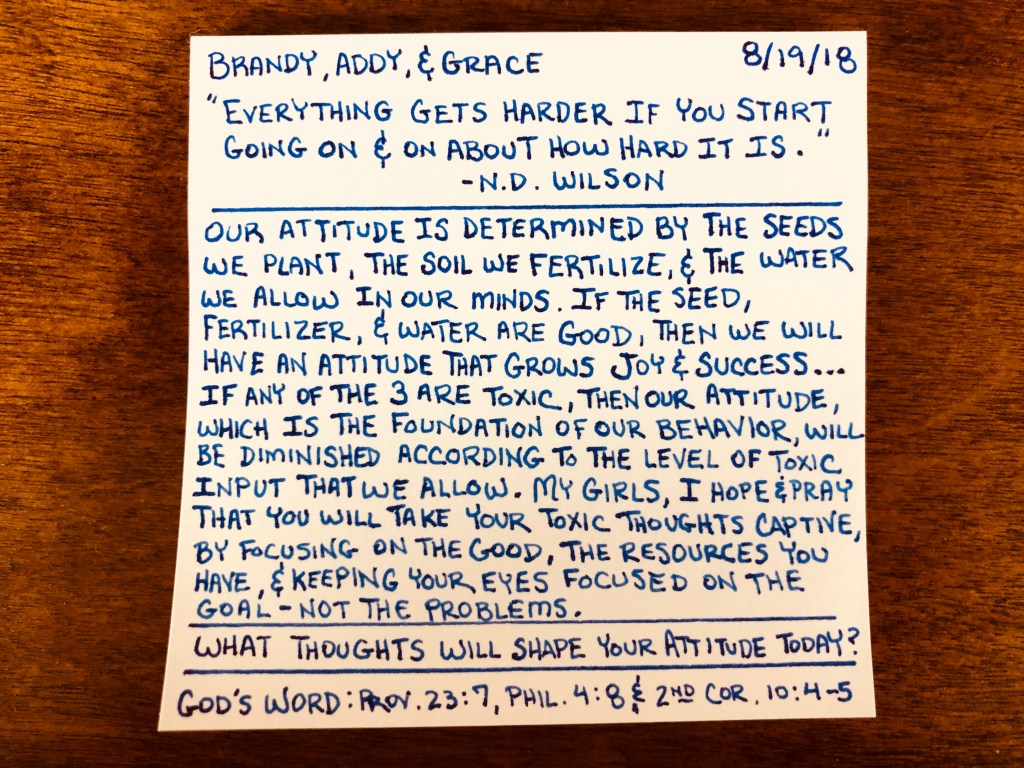 BRANDY, ADDY, & GRACE 8/19/18
"EVERYTHING GETS HARDER IF YOU START
GOING ON & ON ABOUT HOW HARD IT IS."
-N.D. WILSON
OUR ATTITUDE IS DETERMINED BY THE SEEDS
WE PLANT, THE SOIL WE FERTILIZE, & THE WATER
WE ALLOW IN OUR MINDS. IF THE SEED,
FERTILIZER, & WATER ARE GOOD, THEN WE WILL
HAVE AN ATTITUDE THAT GROWS JOY & SUCCESS...
IF ANY OF THE 3 ARE TOXIC, THEN OUR ATTITUDE,
WHICH IS THE FOUNDATION OF OUR BEHAVIOR, WILL
BE DIMINISHED ACCORDING TO THE LEVEL OF TOXIC
INPUT THAT WE ALLOW. MY GIRLS, I HOPE & PRAY
THAT YOU WILL TAKE YOUR TOXIC THOUGHTS CAPTIVE,
BY FOCUSING ON THE GOOD, THE RESOURCES YOU
HAVE, & KEEPING YOUR EYES FOCUSED ON THE
GOAL - NOT THE PROBLEMS.
WHAT THOUGHTS WILL SHAPE YOUR ATTITUDE TODAY?
GOD'S WORD: PROV. 23:7, PHIL. 4:8 & 2ND COR. 10:4-5